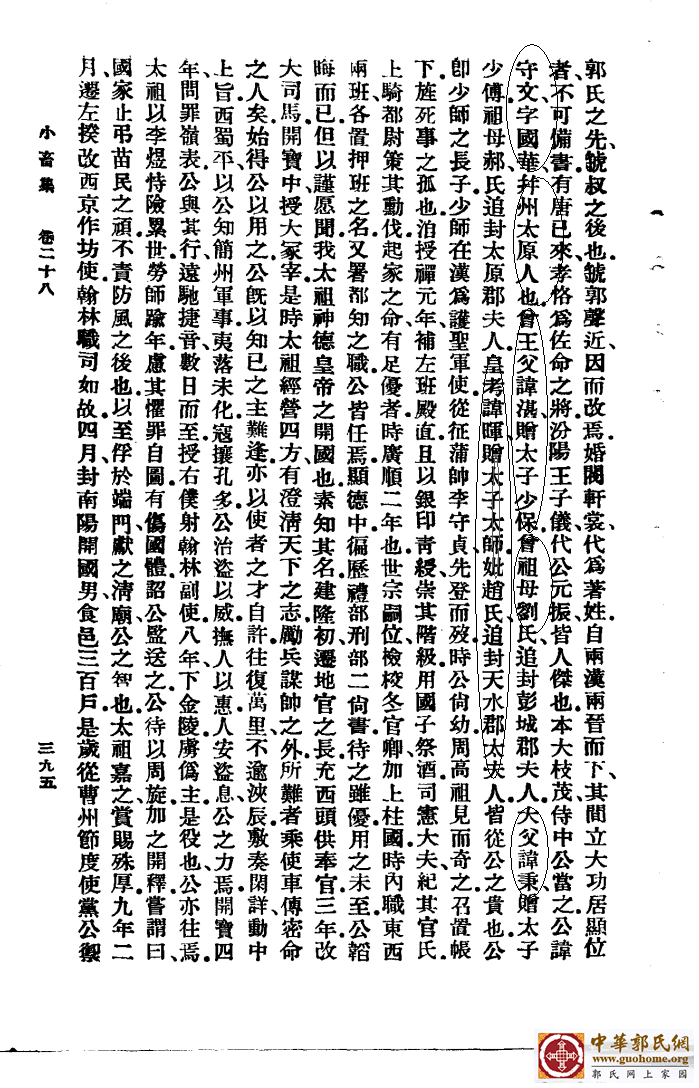 郭氏之先虢叔之後也虢郭聲近因而改焉婚閥軒裳代爲著姓自兩漢兩晉而下其間立大功居顯位
者不可備書有唐已來孝恪爲佐命之將汾陽王子儀代公元振皆人傑也本大枝茂侍中公當之公諱
守文字國華幷州太原人也曾王父諱湛贈太子少保曾祖母劉氏追封彭城郡夫人大父諱秉贈太子
少傅祖母郝氏追封太原郡夫人皇考諱暉贈太子太師妣趙氏追封天水郡太夫人皆從公之貴也公
卽少師之長子少師在漢爲護聖軍使從征蒲帥李守貞先登而歿時公尙幼周高祖見而奇之召置帳
下旌死事之孤也洎授禪元年補左班殿直且以銀印靑綬崇其階級用國子祭酒司憲大夫紀其官氏
上騎都尉策其勳伐起家之命有足優者時廣順二年也世宗嗣位檢校冬官卿加上柱國時內職東西
兩班各置押班之名又署都知之職公皆任焉顯德中徧歷禮部刑部二尙書待之雖優用之未至公韜
晦而已但以謹愿聞我太祖神德皇帝之開國也素知其名建隆初遷地官之長充西頭供奉官三年改
大司馬開寶中授大冢宰是時太祖經營四方有澄淸天下之志勵兵謀帥之外所難者乘使車傳密命
之人矣始得公以用之公旣以知已之主難逢亦以使者之才自許往復萬里不逾浹辰敷奏閑詳動中
上旨西蜀平以公知簡州軍事夷落未化寇攘孔多公治盜以威撫人以惠人安盜息公之力焉開寶四
年問罪嶺表公與其行遠馳捷音數日而至授右僕射翰林副使八年下金陵虜僞主是役也公亦往焉
太祖以李煜恃險累世勞師踰年慮其懼罪自圖有傷國體詔公監送之公待以周旋加之開釋嘗謂曰
國家止弔苗民之頑不責防風之後也以至俘於端門獻之淸廟公之智也太祖嘉之賞賜殊厚九年二
月遷左揆改西京作坊使翰林職司如故四月封南陽開國男食邑三百戶是歲從曹州節度使黨公禦
小畜集 卷二十八 三九五
中華郭氏網
www.guohome.org
郭氏网上家园